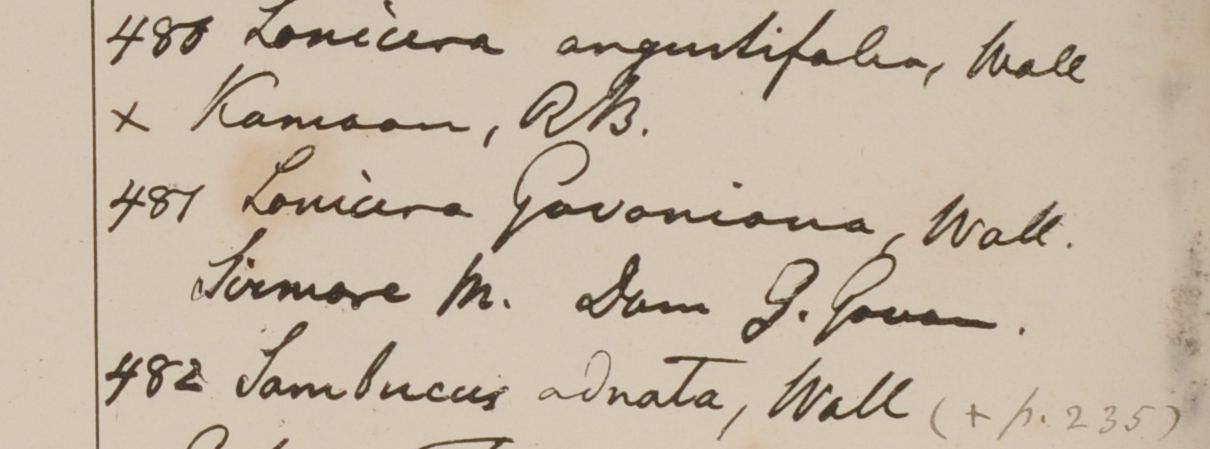 480 Lonicera angustifolia, Wall
x Kamaon, RB.
481 Lonicera Govaniana, Wall.
Sirmore M. Dom G. Govan.
482 Sambucus adnata, Wall (+ p. 235)